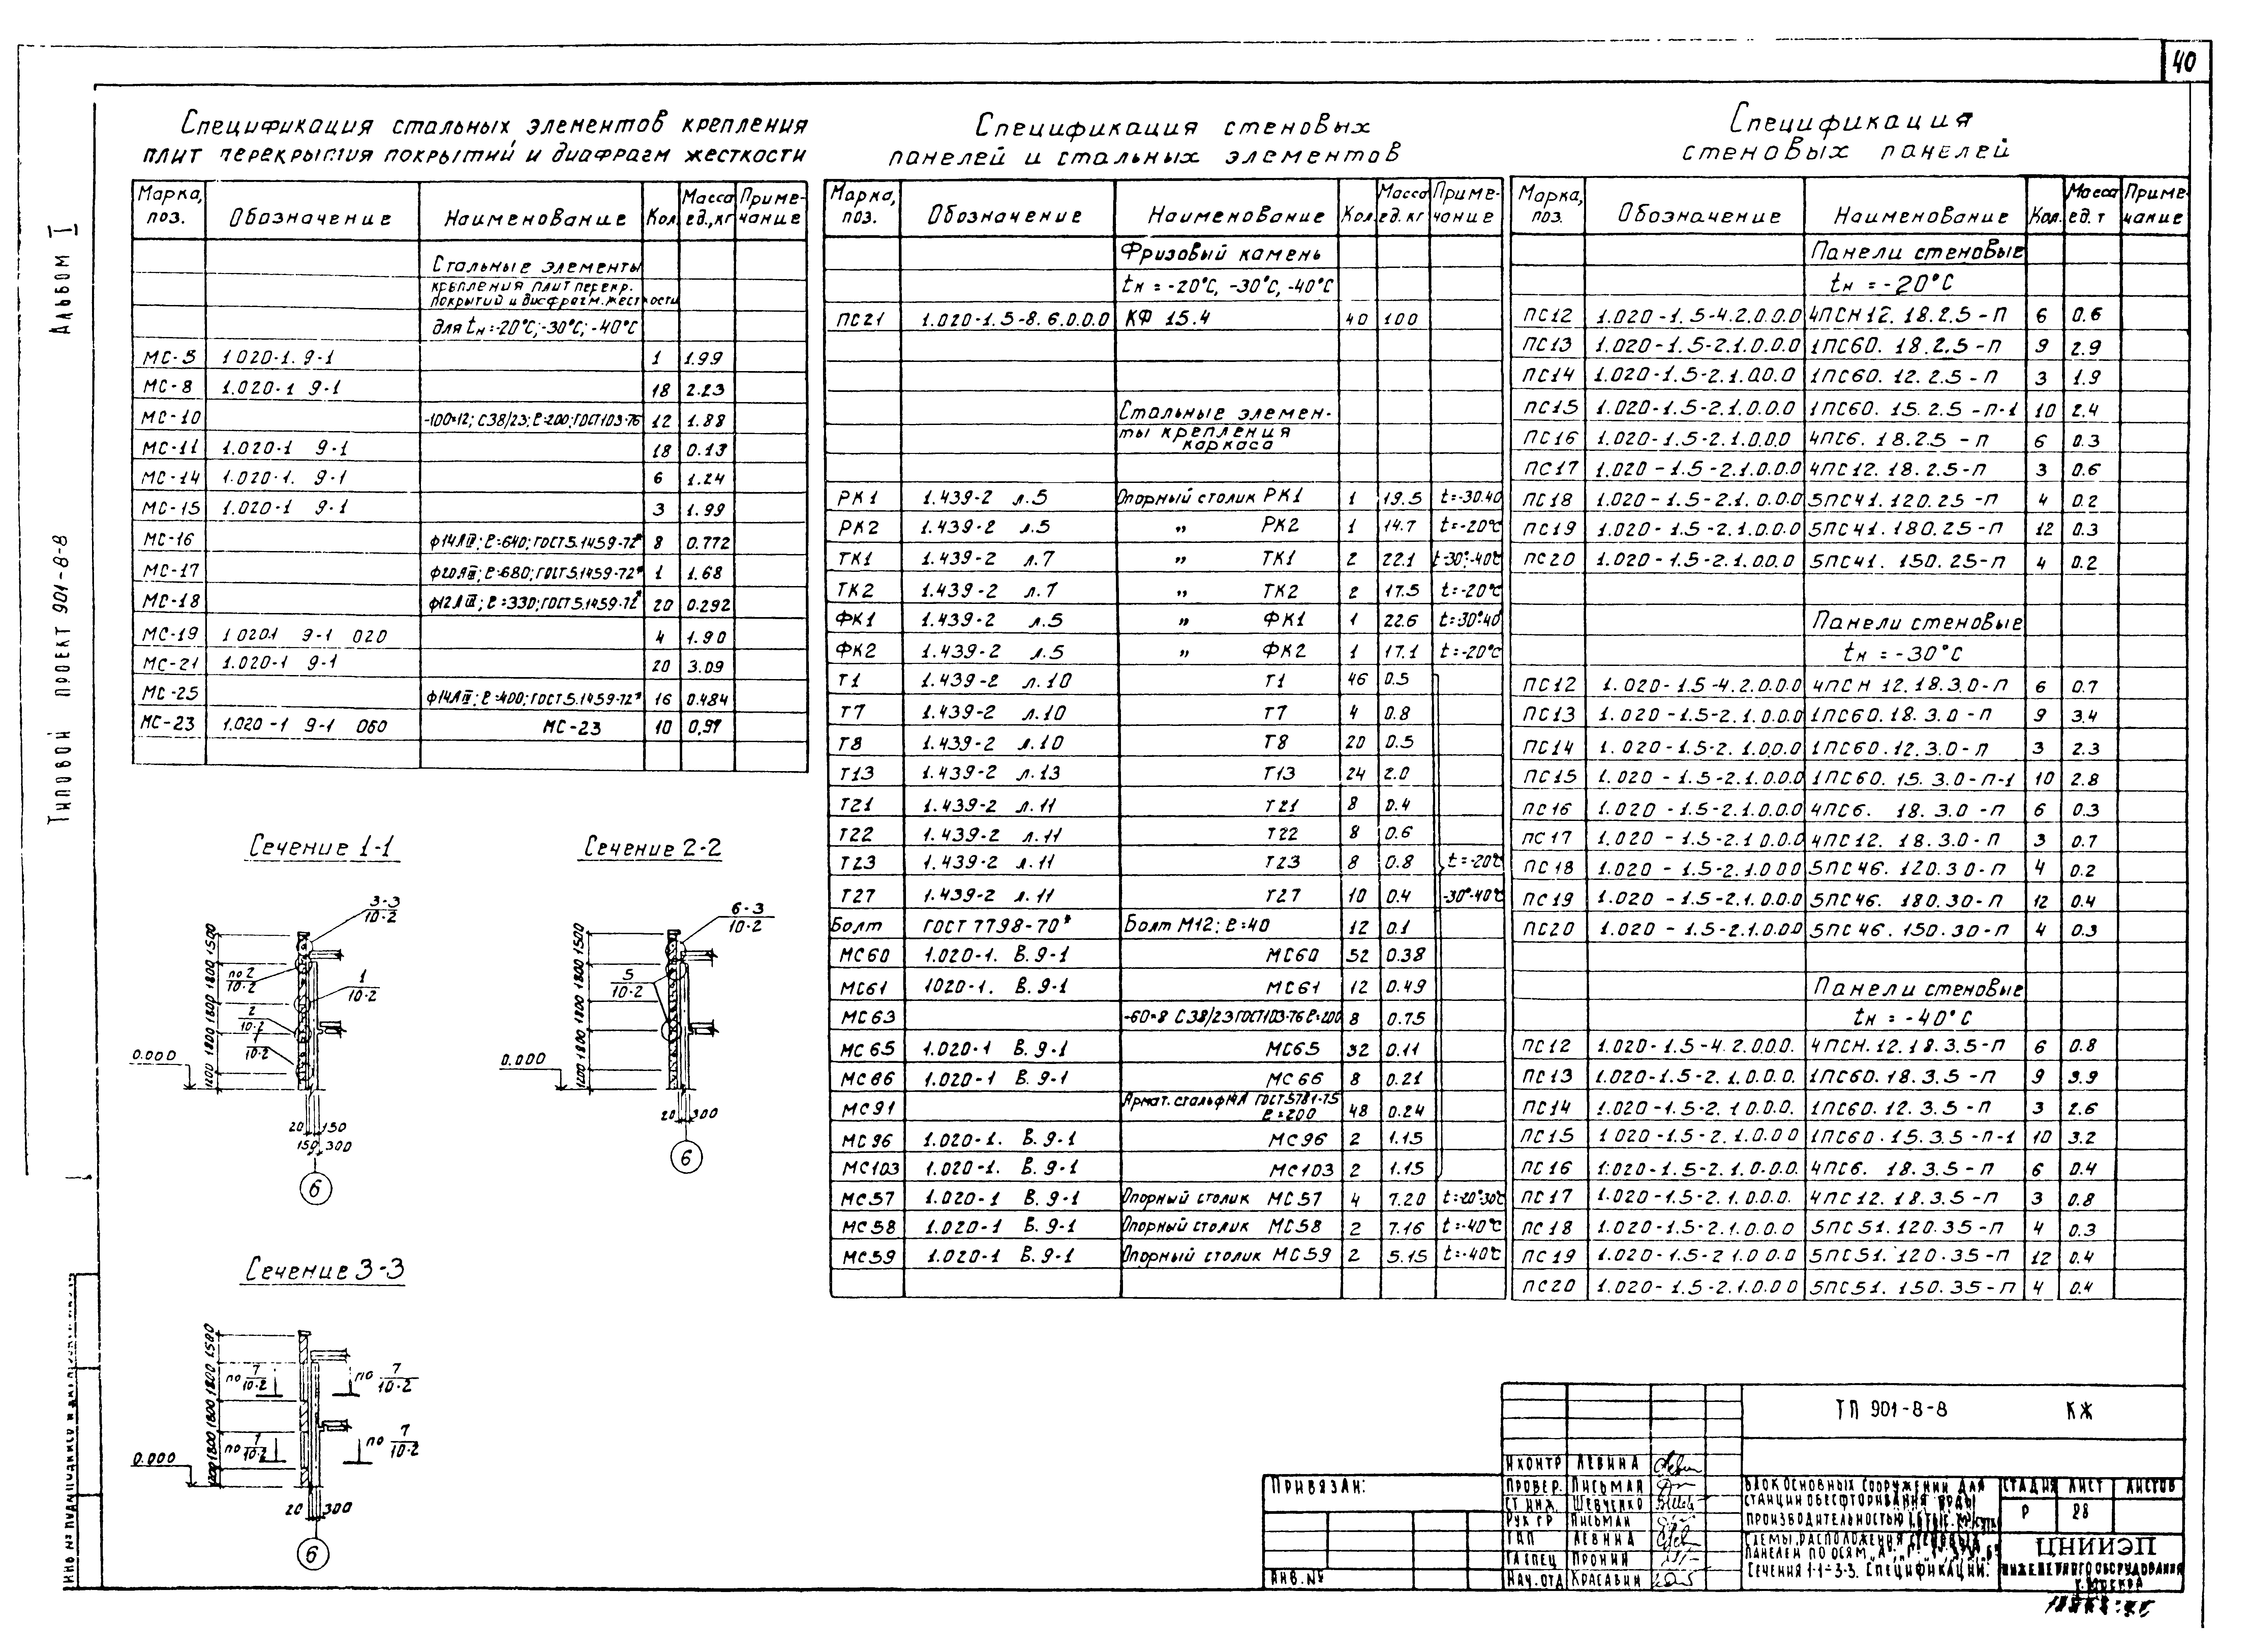 40
Альбом I
Типовой проект 901-8-8
Спецификация стальных элементов крепления
плит перекрытия покрытий и диафрагм жесткости
Марка, поз. Обозначение Наименование Кол. Масса ед., кг Примечание
Стальные элементы
крепления плит перекр.
покрытий и диафрагм. жесткости
для tн=-20°С; -30°С; -40°С
МС-5 1020-1. 9-1 1 1.99
МС-8 1.020-1 9-1 18 2.23
МС-10 -100=12; С38/23; ℓ=200; ГОСТ103-76 12 1.88
МС-11 1.020-1 9-1 18 0.13
МС-14 1.020-1. 9-1 6 1.24
МС-15 1.020-1 9-1 3 1.99
МС-16 ф14АIII; ℓ=640; ГОСТ5.1459-72* 8 0.772
МС-17 ф20АIII; ℓ=680; ГОСТ5.1459-72* 1 1.68
МС-18 ф12АIII; ℓ=330; ГОСТ5.1459-72* 20 0.292
МС-19 1020-1 9-1 020 4 1.90
МС-21 1.020-1 9-1 20 3.09
МС-25 ф14АIII; ℓ=400; ГОСТ5.1459-72* 16 0.484
МС-23 1.020-1 9-1 060 МС-23 10 0,97
Сечение 1-1
3-3
10-2
по 2
10-2
1
10-2
2
10-2
1
10-2
1200 1800 1800 1800 1500
0.000
20 150
150 300
6
Сечение 2-2
6-3
10-2
5
10-2
1200 1800 1800 1800 1500
0.000
20 300
6
Сечение 3-3
по 7
10-2
по 7
10-2
по 7
10-2
по 7
10-2
1200 1800 1800 1800 1500
0.000
20 300
6
Спецификация стеновых
панелей и стальных элементов
Марка, поз. Обозначение Наименование Кол. Масса ед. кг Примечание
Фризовый камень
tн = -20°С, -30°С, -40°С
ПС21 1.020-1.5-8.6.0.0.0 КФ 15.4 40 100
Стальные элемен-
ты крепления
каркаса
РК1 1.439-2 л.5 Опорный столик РК1 1 19.5 t=-30.40
РК2 1.439-2 л.5 „ РК2 1 14.7 t=-20°С
ТК1 1.439-2 л.7 „ ТК1 2 22.1 t-30°-40°С
ТК2 1.439-2 л.7 „ ТК2 2 17.5 t=-20°С
ФК1 1.439-2 л.5 „ ФК1 1 22.6 t=30°40°
ФК2 1.439-2 л.5 „ ФК2 1 17.1 t=-20°С
Т1 1.439-2 л.10 Т1 46 0.5
Т7 1.439-2 л.10 Т7 4 0.8
Т8 1.439-2 л.10 Т8 20 0.5
Т13 1.439-2 л.13 Т13 24 2.0
Т21 1.439-2 л.11 Т21 8 0.4
Т22 1.439-2 л.11 Т22 8 0.6
Т23 1.439-2 л.11 Т23 8 0.8 t=-20°С
Т27 1.439-2 л.11 Т27 10 0.4 -30°-40°С
Болт ГОСТ 7798-70* Болт М12; ℓ=40 12 0.1
МС60 1.020-1. В.9-1 МС60 52 0.38
МС61 1020-1. В.9-1 МС61 12 0.49
МС63 -60=8 С38/23 ГОСТ103-76 ℓ=200 8 0.75
МС65 1.020-1 В.9-1 МС65 32 0.11
МС66 1.020-1 В.9-1 МС66 8 0.21
МС91 Армат. сталь ГОСТ5781-75 ℓ=200 48 0.24
МС96 1.020-1. В.9-1 МС96 2 1.15
МС103 1.020-1. В.9-1 МС103 2 1.15
МС57 1.020-1 В.9-1 Опорный столик МС57 4 7.20 t=-20°30°С
МС58 1.020-1 В.9-1 Опорный столик МС58 2 7.16 t=-40°С
МС59 1.020-1 В.9-1 Опорный столик МС59 2 5.15 t=-40°С
Спецификация
стеновых панелей
Марка, поз. Обозначение Наименование Кол. Масса ед. т Примечание
Панели стеновые
tн = -20°С
ПС12 1.020-1.5-4.2.0.0.0 4ПСН12.18.2.5-П 6 0.6
ПС13 1.020-1.5-2.1.0.0.0 1ПС60.18.2.5-П 9 2.9
ПС14 1.020-1.5-2.1.0.0.0 1ПС60.12.2.5-П 3 1.9
ПС15 1.020-1.5-2.1.0.0.0 1ПС60.15.2.5-П-1 10 2.4
ПС16 1.020-1.5-2.1.0.0.0 4ПС6.18.2.5-П 6 0.3
ПС17 1.020-1.5-2.1.0.0.0 4ПС12.18.2.5-П 3 0.6
ПС18 1.020-1.5-2.1.0.0.0 5ПС41.120.25-П 4 0.2
ПС19 1.020-1.5-2.1.0.0.0 5ПС41.180.25-П 12 0.3
ПС20 1.020-1.5-2.1.0.0.0 5ПС41.150.25-П 4 0.2
Панели стеновые
tн = -30°С
ПС12 1.020-1.5-4.2.0.0.0 4ПСН 12.18.3.0-П 6 0.7
ПС13 1.020-1.5-2.1.0.0.0 1ПС60.18.3.0-П 9 3.4
ПС14 1.020-1.5-2.1.0.0.0 1ПС60.12.3.0-П 3 2.3
ПС15 1.020-1.5-2.1.0.0.0 1ПС60.15.3.0-П-1 10 2.8
ПС16 1.020-1.5-2.1.0.0.0 4ПС6. 18.3.0-П 6 0.3
ПС17 1.020-1.5-2.1.0.0.0 4ПС12.18.3.0-П 3 0.7
ПС18 1.020-1.5-2.1.0.0.0 5ПС46.120.30-П 4 0.2
ПС19 1.020-1.5-2.1.0.0.0 5ПС46.180.30-П 12 0.4
ПС20 1.020-1.5-2.1.0.0.0 5ПС46.150.30-П 4 0.3
Панели стеновые
tн = -40°С
ПС12 1.020-1.5-4.2.0.0.0. 4ПСН.12.18.3.5-П 6 0.8
ПС13 1.020-1.5-2.1.0.0.0. 1ПС60.18.3.5-П 9 3.9
ПС14 1.020-1.5-2.1.0.0.0. 1ПС60.12.3.5-П 3 2.6
ПС15 1.020-1.5-2.1.0.0.0 1ПС60.15.3.5-П-1 10 3.2
ПС16 1.020-1.5-2.1.0.0.0. 4ПС6. 18.3.5-П 6 0.4
ПС17 1.020-1.5-2.1.0.0.0. 4ПС12.18.3.5-П 3 0.8
ПС18 1.020-1.5-2.1.0.0.0 5ПС51.120.35-П 4 0.3
ПС19 1.020-1.5-2.1.0.0.0 5ПС51.120.35-П 12 0.4
ПС20 1.020-1.5-2.1.0.0.0 5ПС51.150.35-П 4 0.4
Привязан:
Инв.№
ТП 901-8-8 КЖ
Н контр Левина
Провер. Письман
Ст инж. Шевченко
Рук гр Письман
ГИП Левина
Гл спец Пронин
Нач.отд Красавин
Блок основных сооружений для
станции обесфторивания воды
производительностью
Схемы расположения стеновых
панелей по осям
Сечения 1-1÷3-3. Спецификации.
Стадия Лист Листов
Р 28
ЦНИИЭП
инженерного оборудования
г. Москва